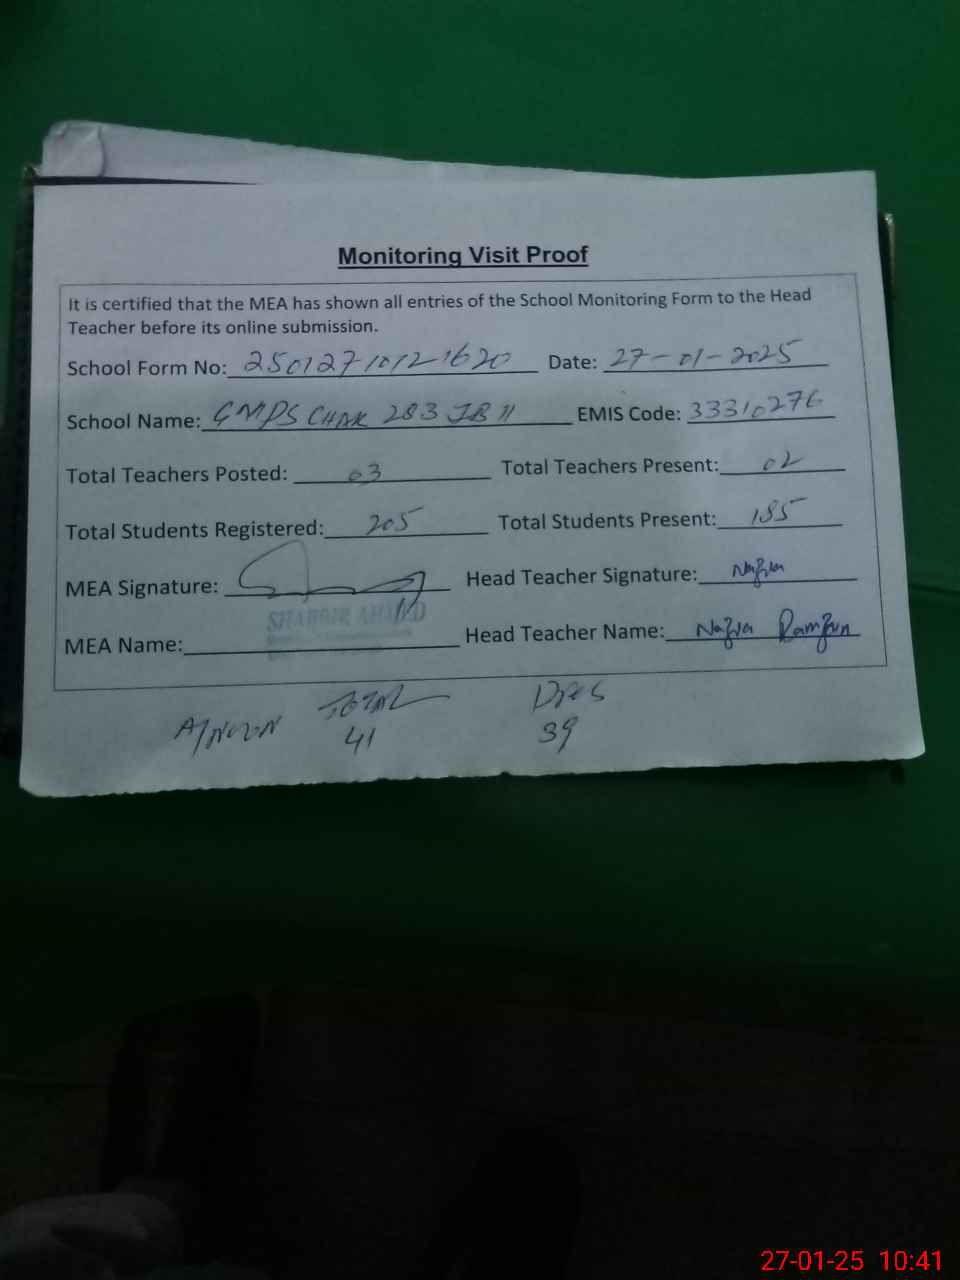 Monitoring Visit Proof
It is certified that the MEA has shown all entries of the School Monitoring Form to the Head
Teacher before its online submission.
School Form No: 25012710121620 Date: 27-01-2025
School Name: GMPS CHAK 283 JB II EMIS Code: 33310276
Total Teachers Posted: 03 Total Teachers Present: 02
Total Students Registered: 205 Total Students Present: 185
MEA Signature: Head Teacher Signature: Nazia
SHABBIR AHMAD
MEA Name: Head Teacher Name: Nazia Ramzan
TOTAL
A/NOON 41 39
27-01-25 10:41